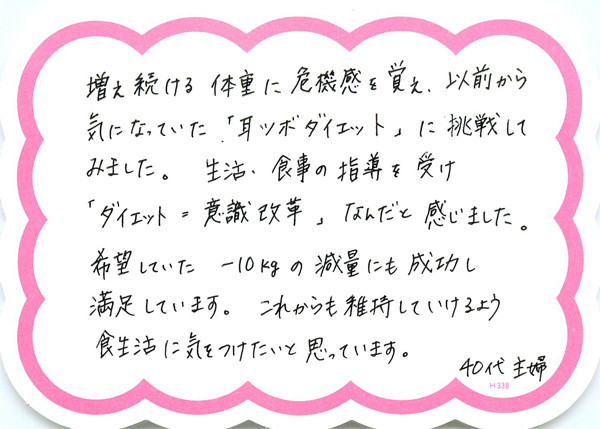 増え続ける 体重に 危機感を覚え、以前から
気になっていた「耳ツボダイエット」に挑戦して
みました。 生活、食事の指導を受け
「ダイエット＝意識改革」なんだと感じました。
希望していた －10kgの減量にも成功し
満足しています。 これからも維持していけるよう
食生活に気をつけたいと思っています。
40代 主婦
H338